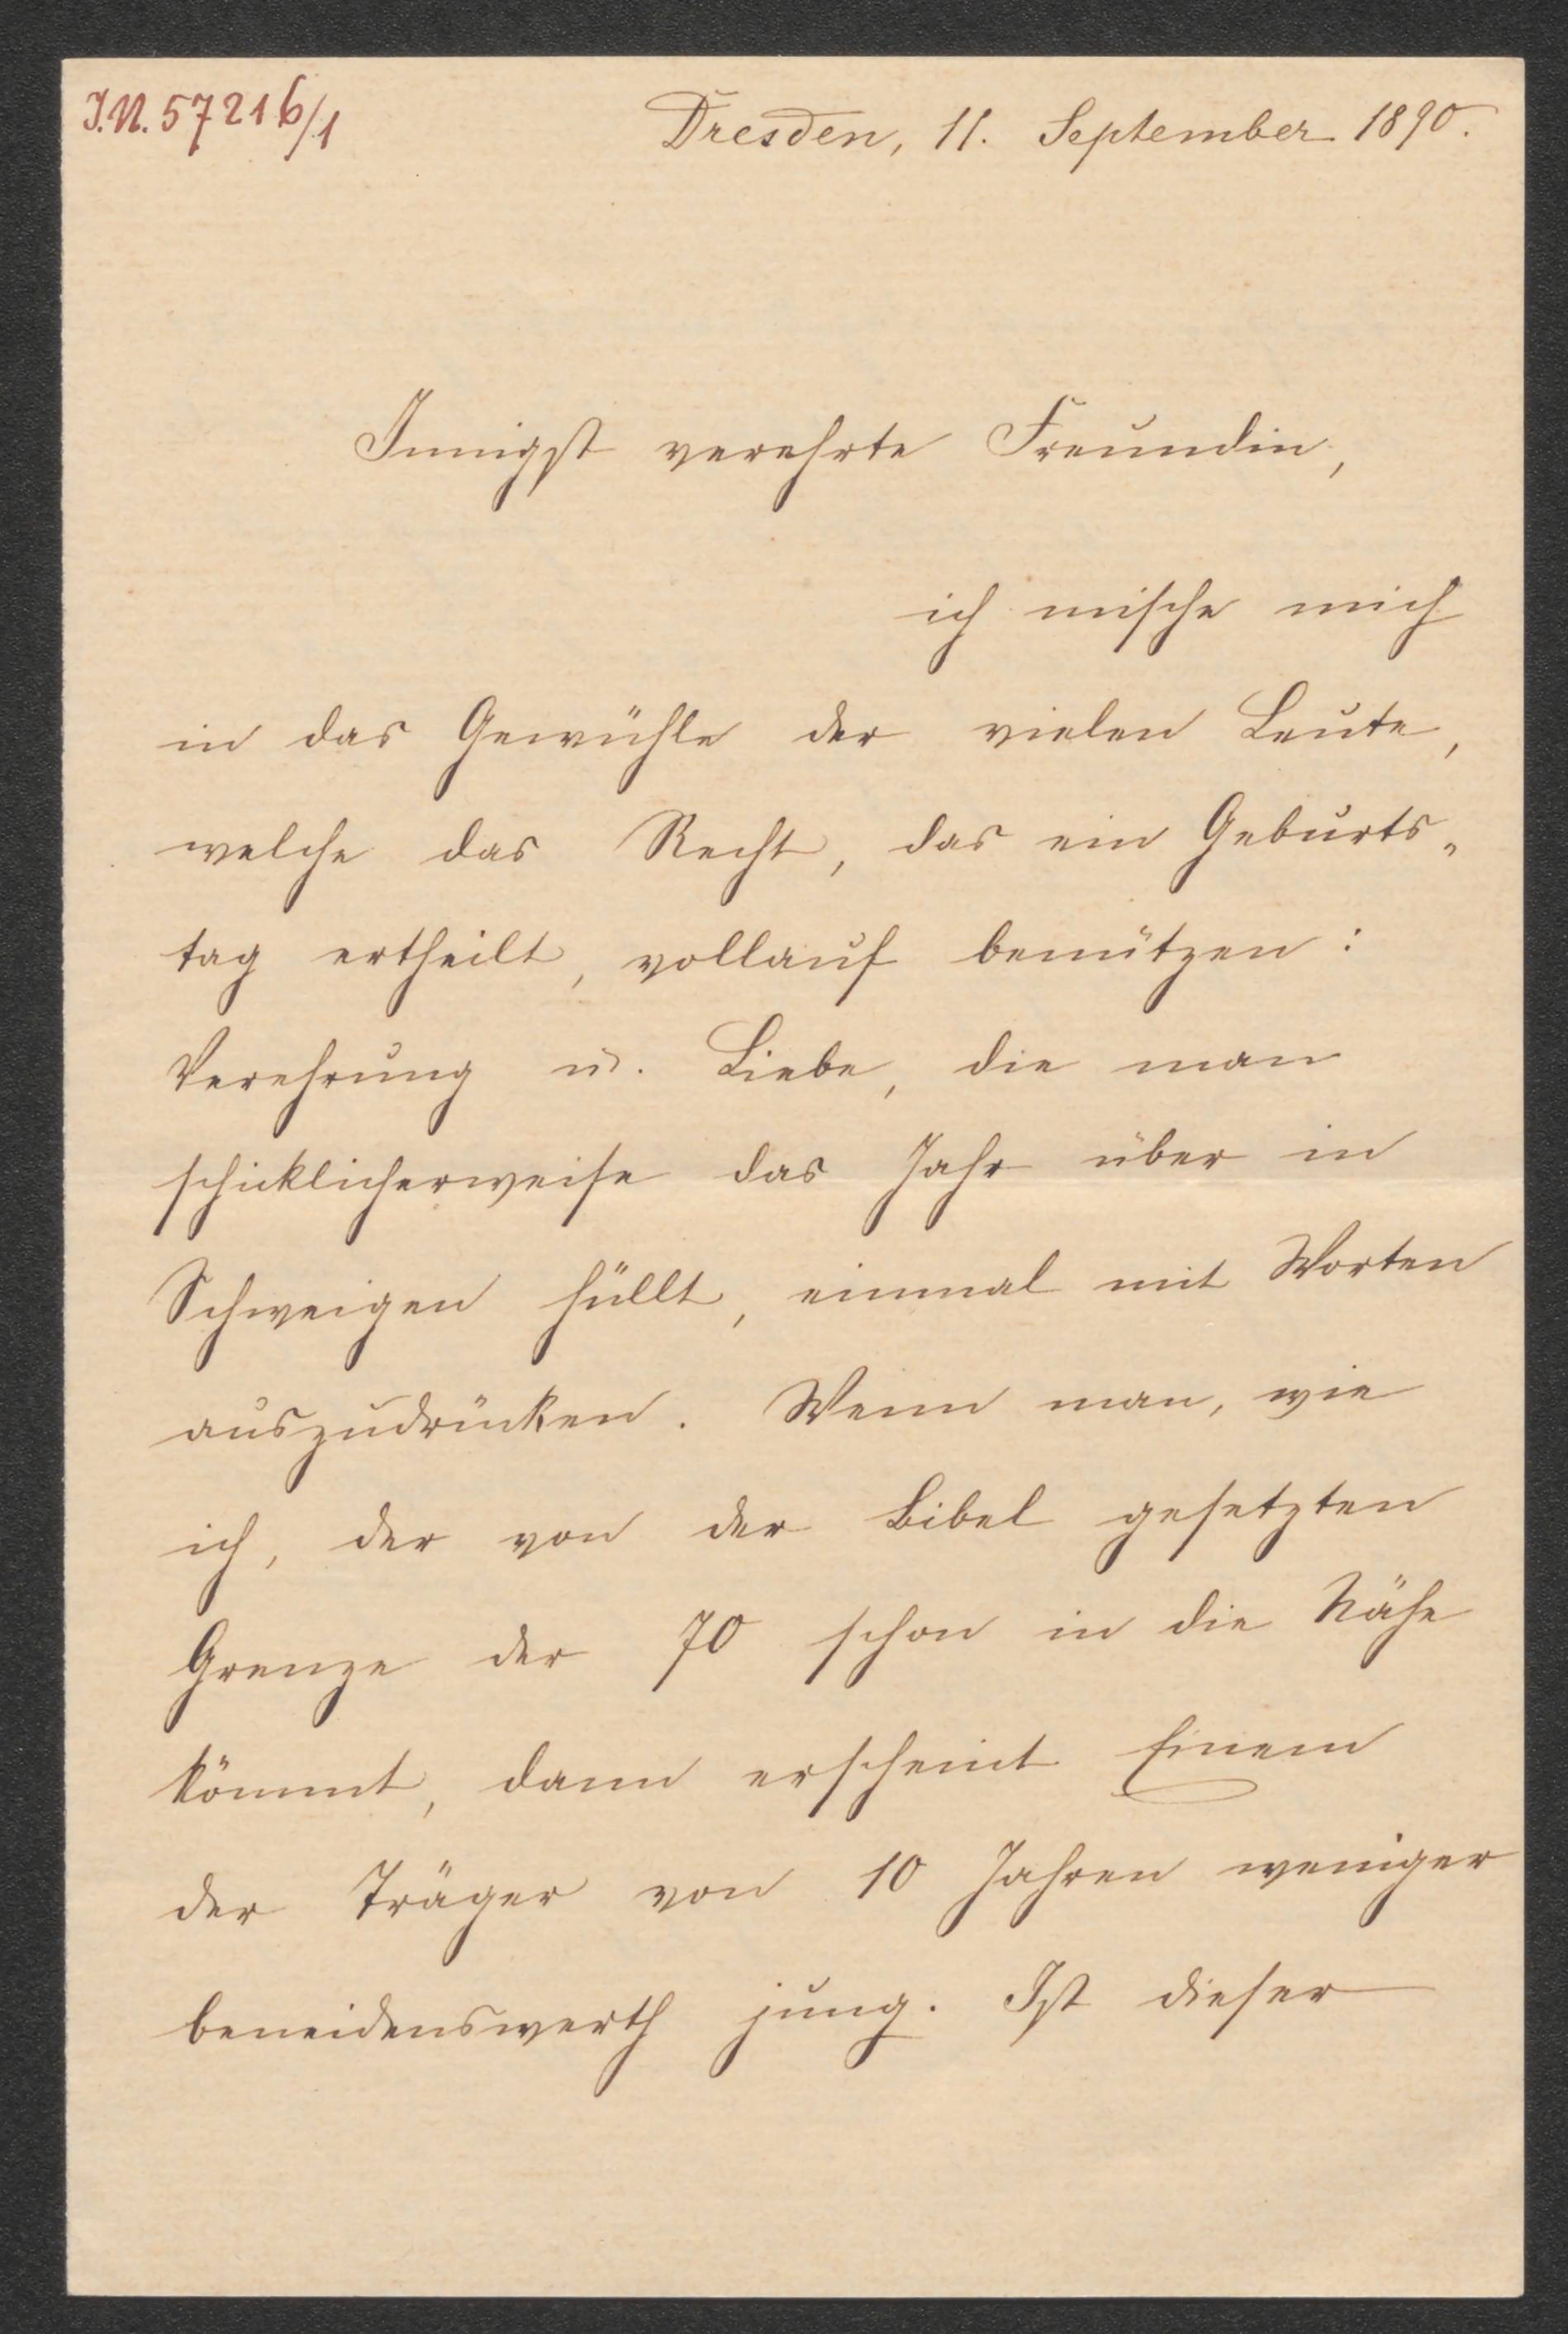 J.N. 57216/1
Dresden, 11. September 1890.
Innigst verehrte Freundin,
ich mische mich
in das Gewühle der vielen Leute,
welche das Recht, das ein Geburts„
tag ertheilt, vollauf benützen:
Verehrung u. Liebe, die man
schicklicherweise das Jahr über in
Schweigen hüllt, einmal mit Worten
auszudrücken. Wenn man, wie
ich, der von der Bibel gesetzten
Grenze der 70 schon in die Nähe
kömmt, dann erscheint Einem
der Träger von 10 Jahren weniger
beneidenswerth jung. Ist dieser